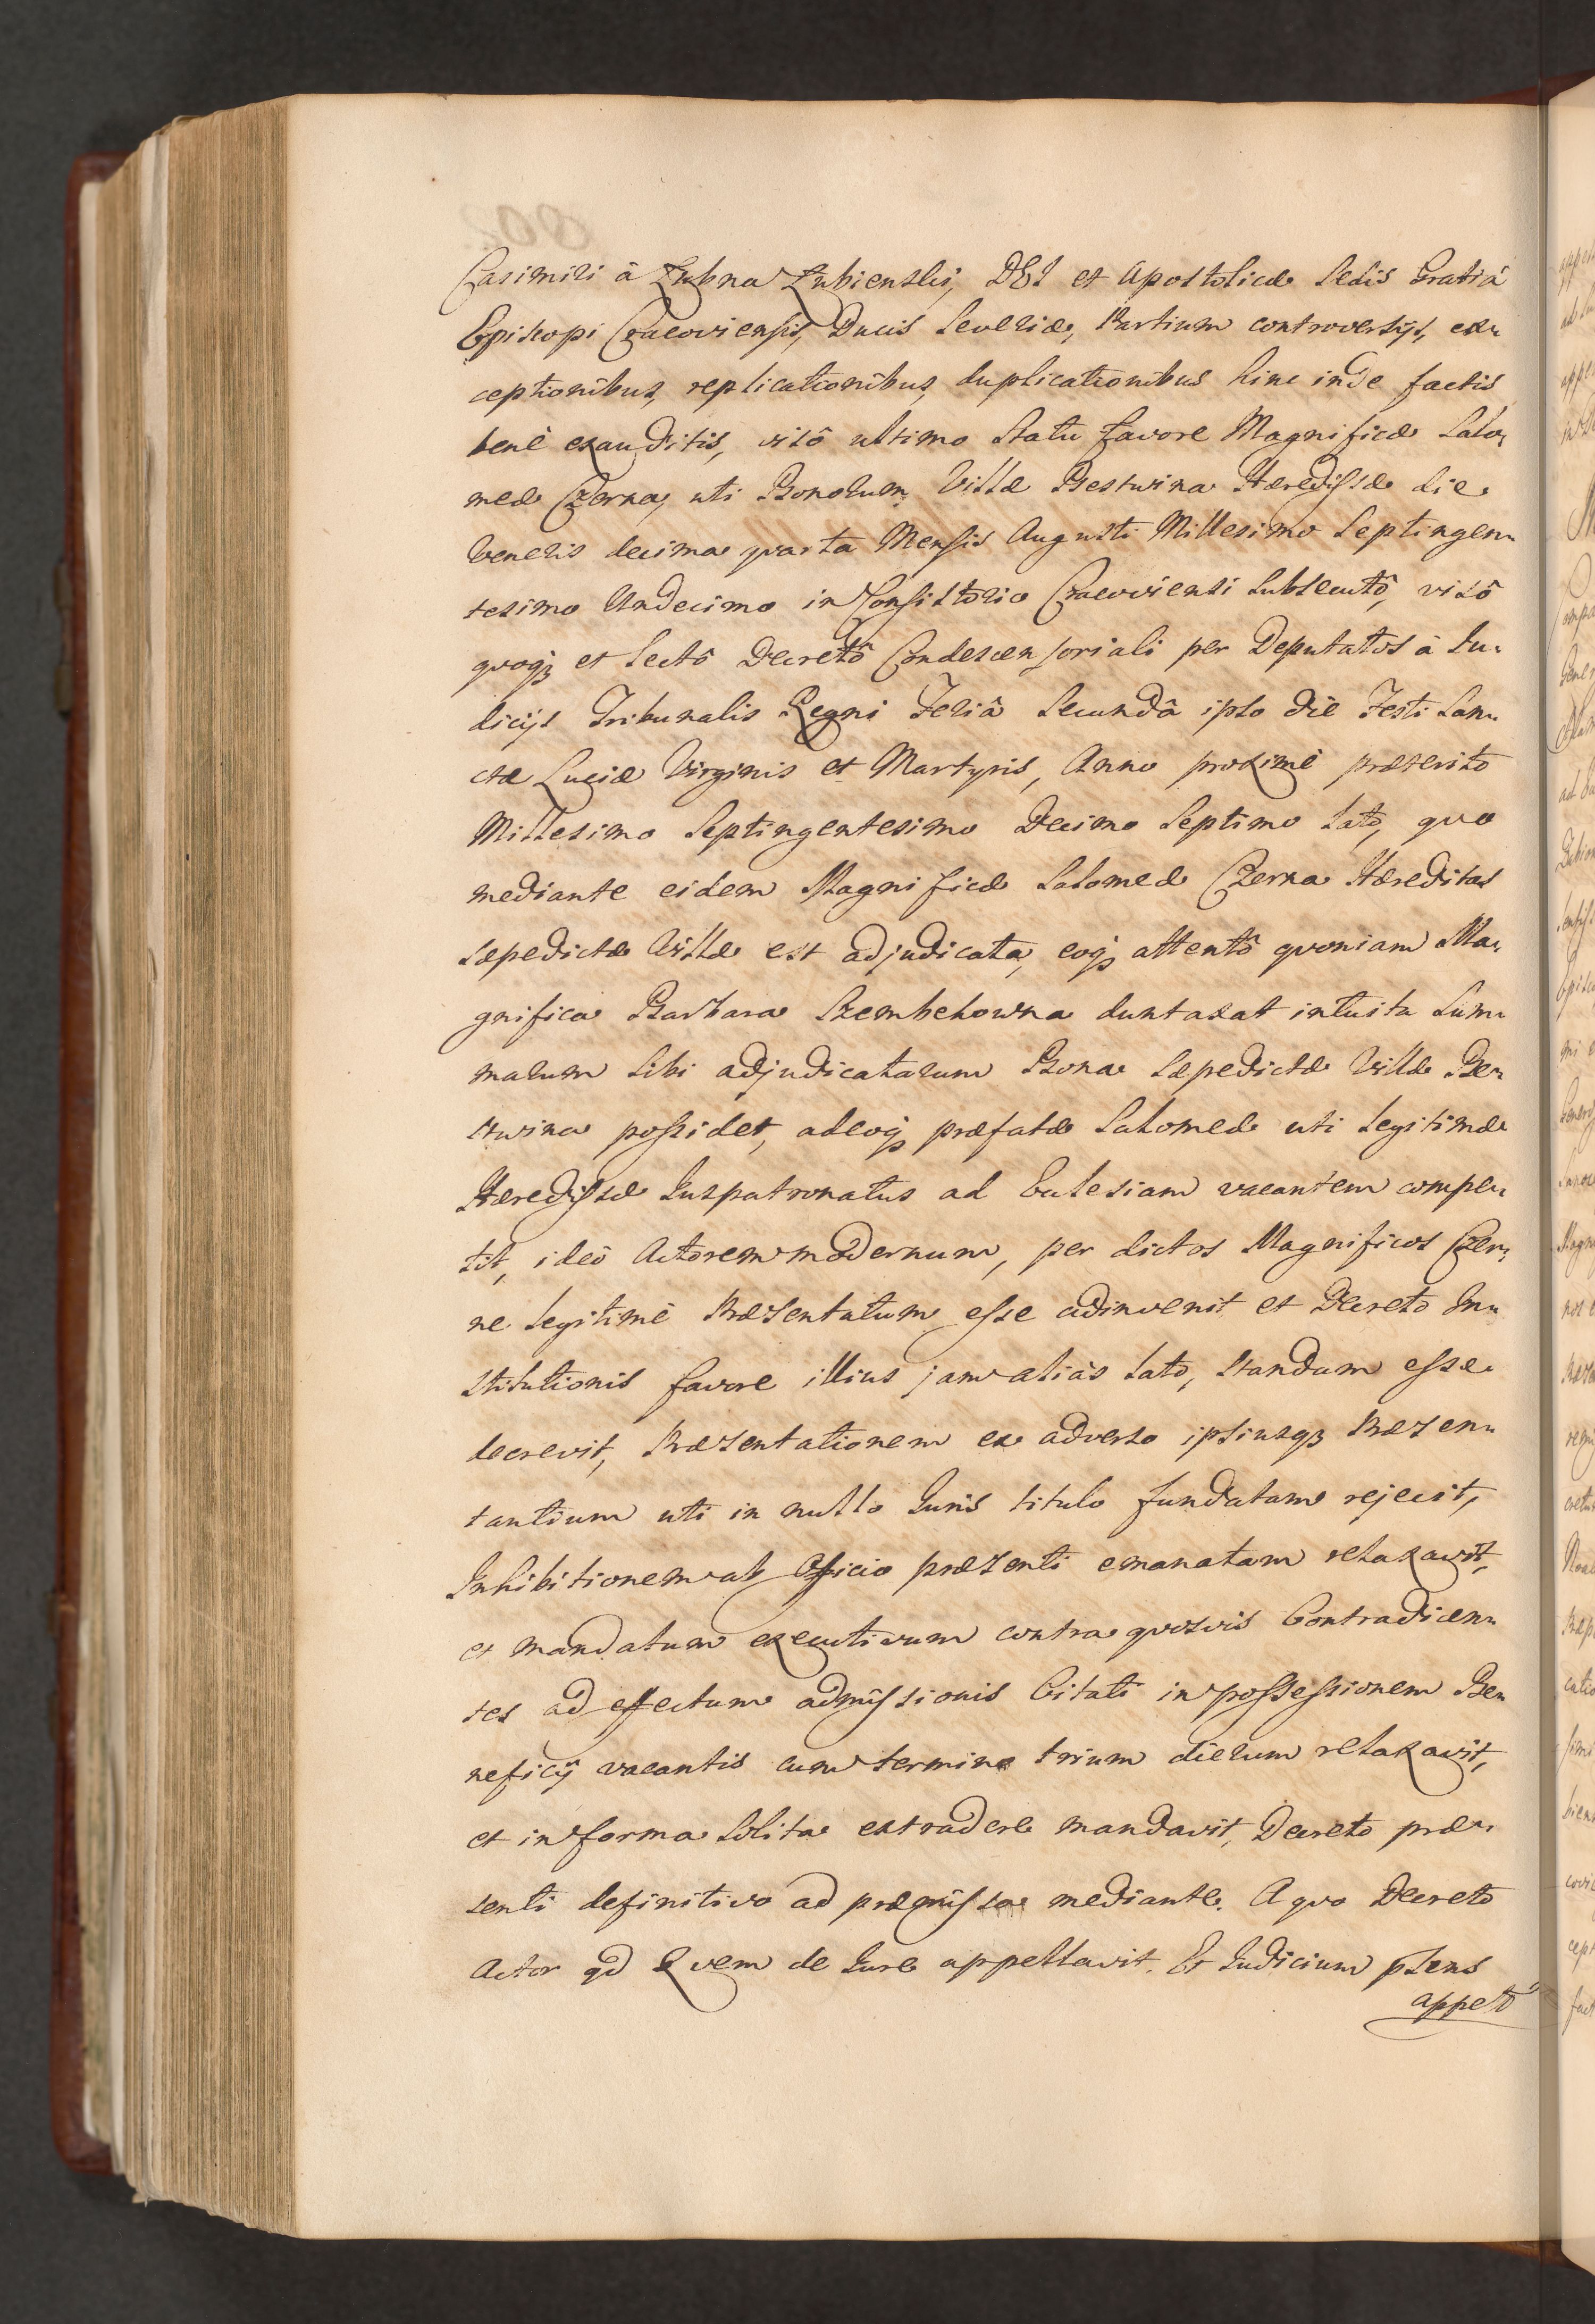 Casimiri â Łubna Łubienski, DEI et Apostolicæ Sedis Gratiâ
Episcopi Cracoviensis, Ducis Severiæ, Partium controversijs, ex„
ceptionibus, replicationibus, duplicationibus hinc inde factis
benè exauditis, visô ultimo Statu favore Magnificæ Salo„
meæ Czerna, uti Bonorum Villæ Bestwina Hæredissæ die
Veneris decima quarta Mensis Augusti Millesimo Septingen„
tesimo Undecimo in Consistorio Cracoviensi subsecutô, visô
quoq3 et lectô Decretô Condescensoriali per Deputatos à Iu„
dicijs Tribunalis Regni Feriâ Secundâ ipso die Festi San„
ctæ Luciæ Virginis et Martyris, Anno proximè præterito
Millesimo Septingentesimo Decimo Septimo lato, quo
mediante eidem Magnificæ Salomeæ Czerna Hæreditas
sæpedictæ Villæ est adjudicata, eoq3 attentô quoniam Ma„
gnifica Barbara Szembekowna duntaxat intuitu Sum„
marum sibi adjudicatarum Bona sæpedictæ Villæ Be„
stwina possidet, adeoq3 præfatæ Salomeæ uti legitimæ
Hæredissæ Juspatronatus ad Ecclesiam vacantem compe„
tit, ideò Actorem modernum, per dictos Magnificos Czer„
ne legitimè Præsentatum esse adinvenit et Decreto In„
stitutionis favore illius jam aliàs lato, standum esse
decrevit, Præsentationem ex adverso ipsiusq3 Præsen„
tantium uti in nullo Juris titulo fundatam rejecit,
Inhibitionem ab Officio præsenti emanatam relaxavit,
et mandatum executivum contra quosvis Contradicen„
tes ad effectum admissionis Citati in possessionem Be„
neficij vacantis cum termino trium dierum relaxavit,
et in forma solita extradere mandavit, Decreto præ„
senti definitivo ad præmissa mediante. A quo Decreto
Actor qd Quem de Iure appellavit. Et Iudicium pſens
appelõ